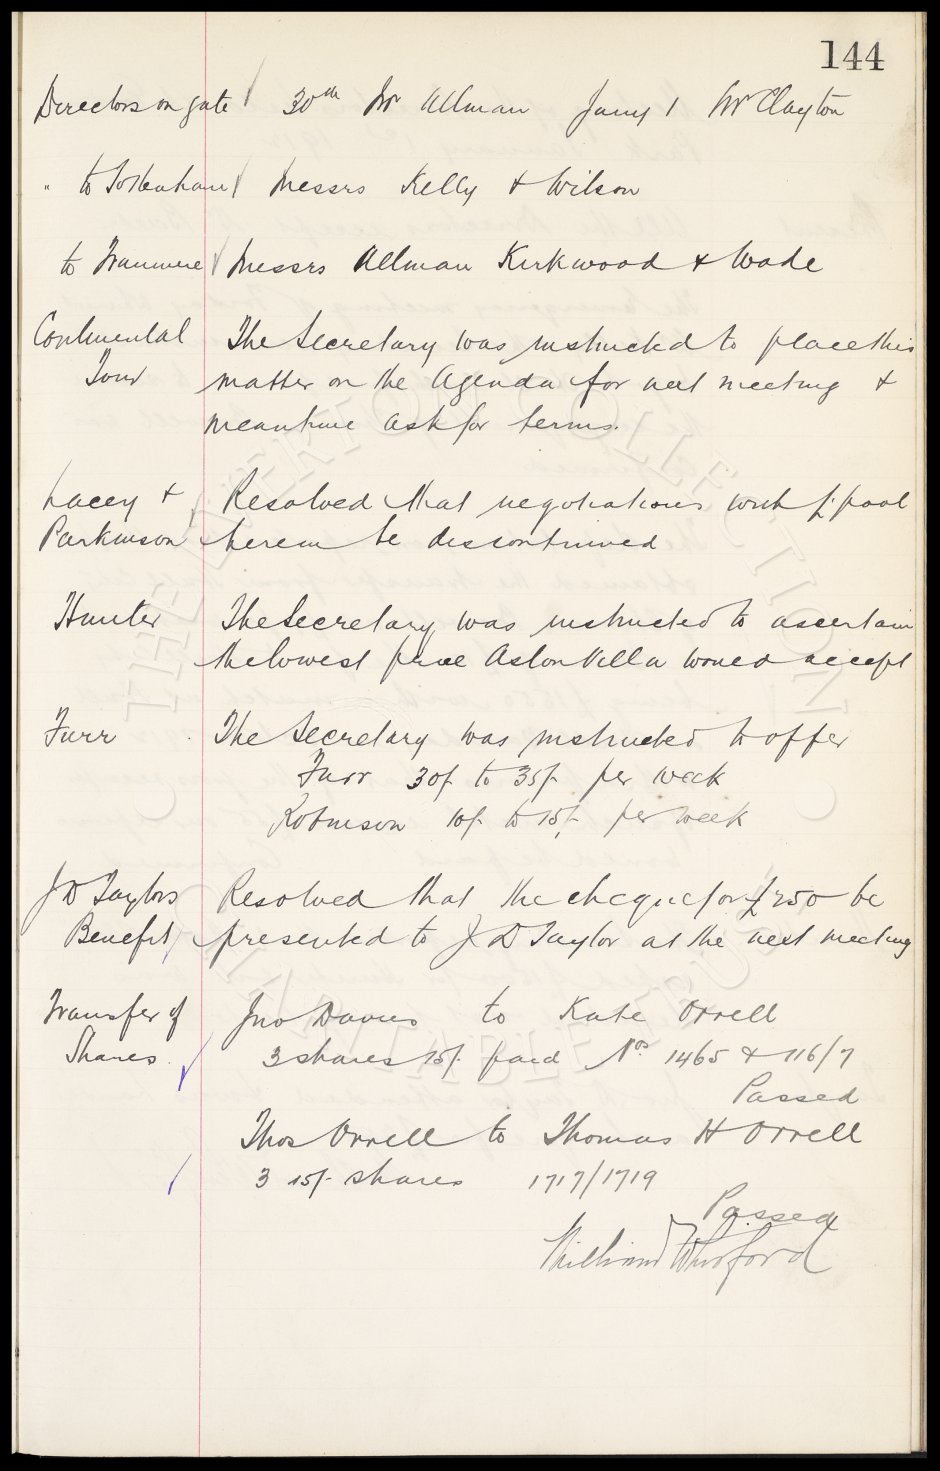 144
Directors on gate 30th Mr Allman Jany 1 Mr Clayton
" to Tottenham Messrs Kelly & Wilson
to Tranmere Messrs Allman Kirkwood & Wade
Continental The Secretary was instructed to place this
Tour matter on the Agenda for next meeting &
meantime ask for terms.
Lacey & Resolved that negotiations with L'pool
Parkinson herein be discontinued
Hunter The Secretary was instructed to ascertain
the lowest price Aston Villa would accept
Furr The Secretary was instructed to offer
Furr 30/- to 35/- per week
Robinson 10/- to 15/- per week
J D Taylors Resolved that the cheque for £750 be
Benefit presented to J D Taylor at the next meeting
Transfer of Jno Davies to Kate Orrell
Shares 3 shares 15/- paid Nos 1465 & 116/7
Passed
Thos Orrell to Thomas H Orrell
3 15/- shares 1717/1719
Passed
William Whitford